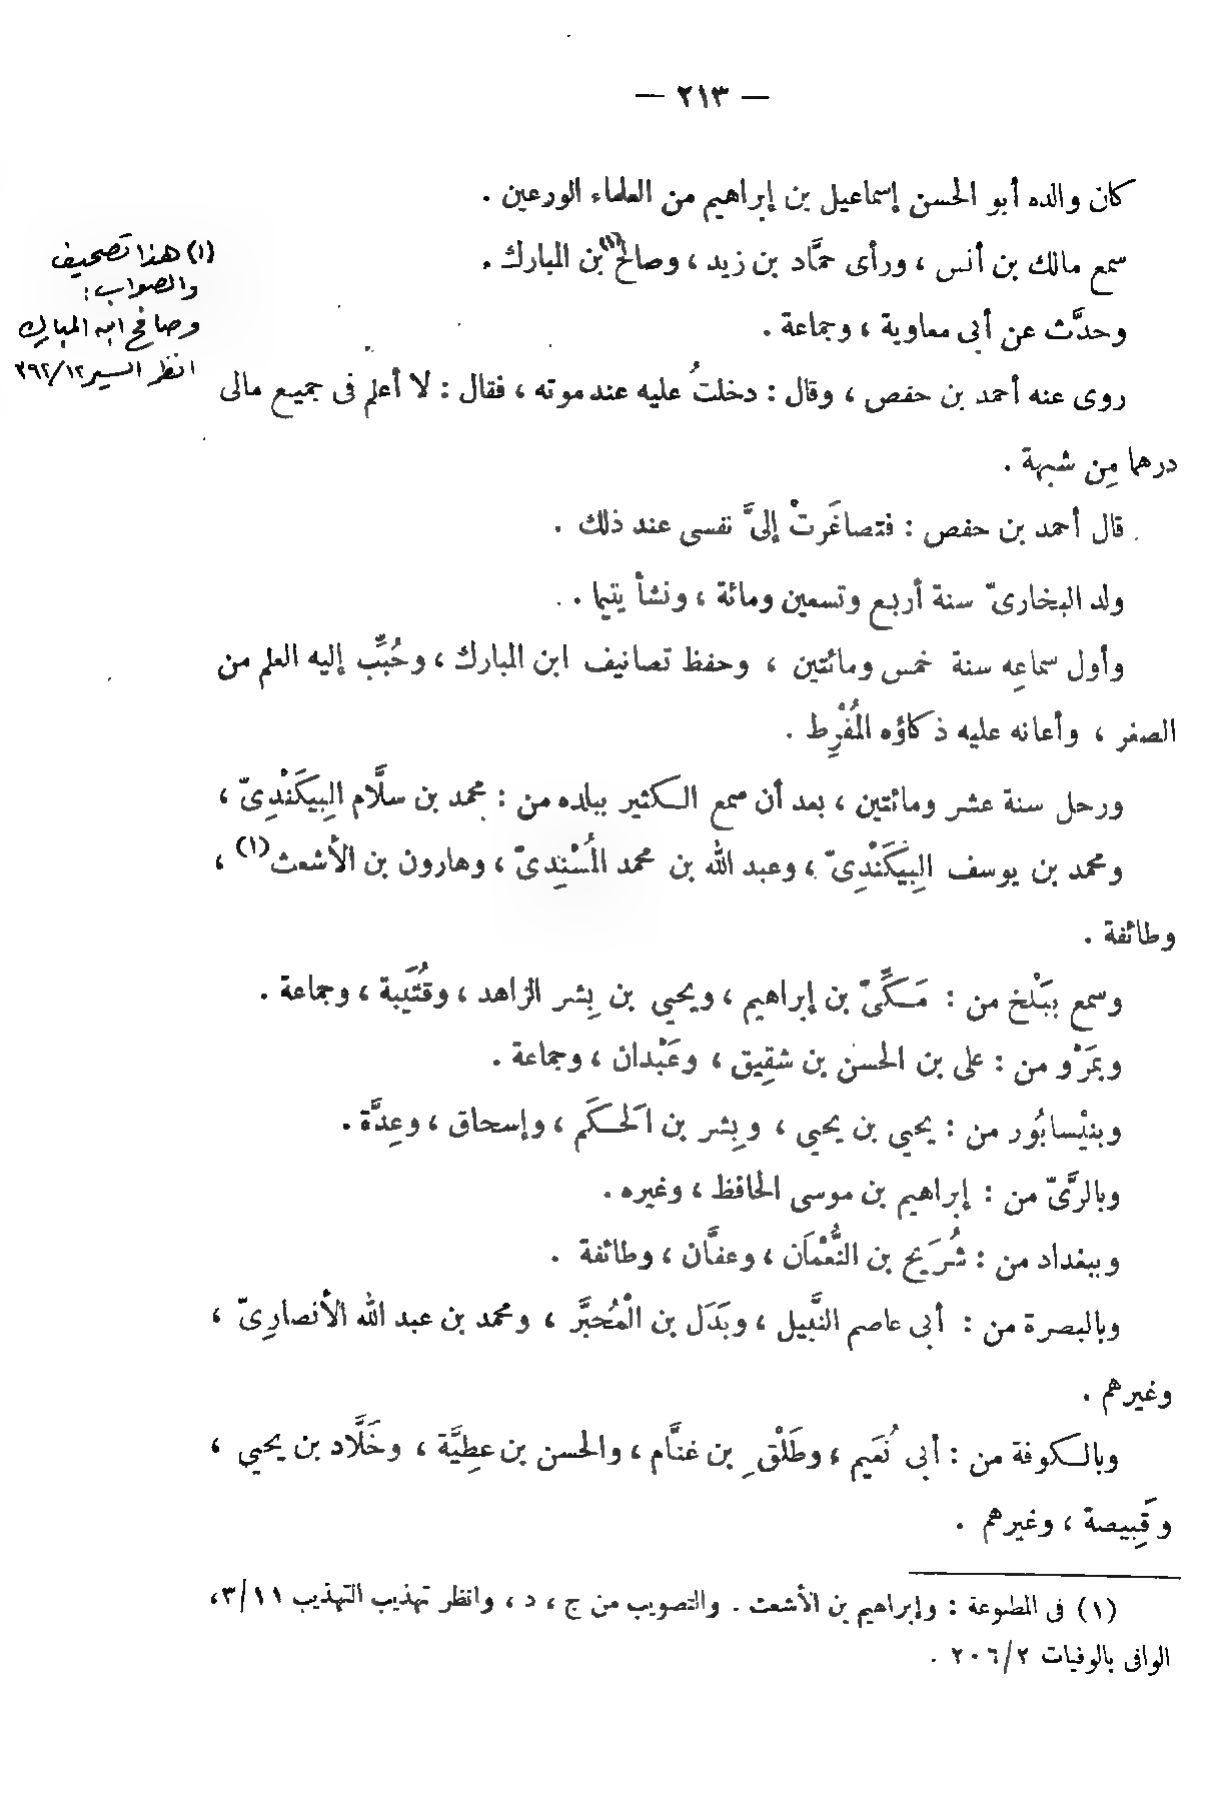 — ٢١٣ —
كان والده أبو الحسن إسماعيل بن إبراهيم من العلماء الورعين .
سمع مالك بن أنس ، ورأى حمَّاد بن زيد ، وصالح(١) بن المبارك .
وحدَّث عن أبى معاوية ، وجماعة .
روى عنه أحمد بن حفص ، وقال : دخلتُ عليه عند موته ، فقال : لا أعلم فى جميع مالى
درهما مِن شبهة .
قال أحمد بن حفص : فتصاغَرتْ إلىَّ نفسى عند ذلك .
ولد البخارىّ سنة أربع وتسعين ومائة ، ونشأ يتيما .
وأول سماعِه سنة خمس ومائتين ، وحفظ تصانيف ابن المبارك ، وحُبِّب إليه العلم من
الصغر ، وأعانه عليه ذكاؤه المُفْرِط .
ورحل سنة عشر ومائتين ، بعد أن سمع الكثير ببلده من : محمد بن سلَّام البِيكَنْدِىّ ،
ومحمد بن يوسف البِيكَنْدِىّ ، وعبد الله بن محمد المُسْنِدِىّ ، وهارون بن الأشعث(١) ،
وطائفة .
وسمع ببَلْخ من : مَكِّىّ بن إبراهيم ، ويحيي بن بِشر الزاهد ، وقُتَيبة ، وجماعة .
وبمَرْو من : على بن الحسن بن شقِيق ، وعَبْدان ، وجماعة .
وبنيْسابُور من : يحيي بن يحيي ، وبِشر بن الحَكَم ، وإسحاق ، وعِدَّة .
وبالرَّىّ من : إبراهيم بن موسى الحافظ ، وغيره .
وببغداد من : شُرَيح بن النُّعْمَان ، وعفَّان ، وطائفة .
وبالبصرة من : أبى عاصم النَّبيل ، وبَدَل بن الْمُحبَّر ، ومحمد بن عبد الله الأنصارِىّ ،
وغيرهم .
وبالكوفة من : أبى نُعَيم ، وطَلْقِ بن غنَّام ، والحسن بن عطِيَّة ، وخَلَّاد بن يحيي ،
وقَبِيصة ، وغيرهم .
(١) فى المطبوعة : وإبراهيم بن الأشعث . والتصويب من ج ، د ، وانظر تهذيب التهذيب ٣/١١ ،
الوافى بالوفيات ٢٠٦/٢ .
(١) هذا تصحيف
والصواب :
وصافح ابن المبارك
انظر السير ٣٩٢/١٢